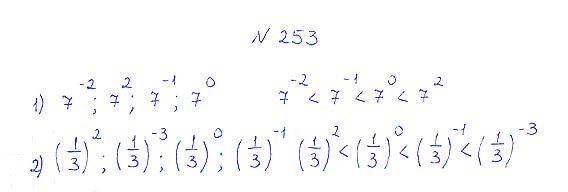 N 253
1) 7⁻²; 7²; 7⁻¹; 7⁰ 7⁻² < 7⁻¹ < 7⁰ < 7²
2) (1/3)²; (1/3)⁻³; (1/3)⁰; (1/3)⁻¹ (1/3)² < (1/3)⁰ < (1/3)⁻¹ < (1/3)⁻³